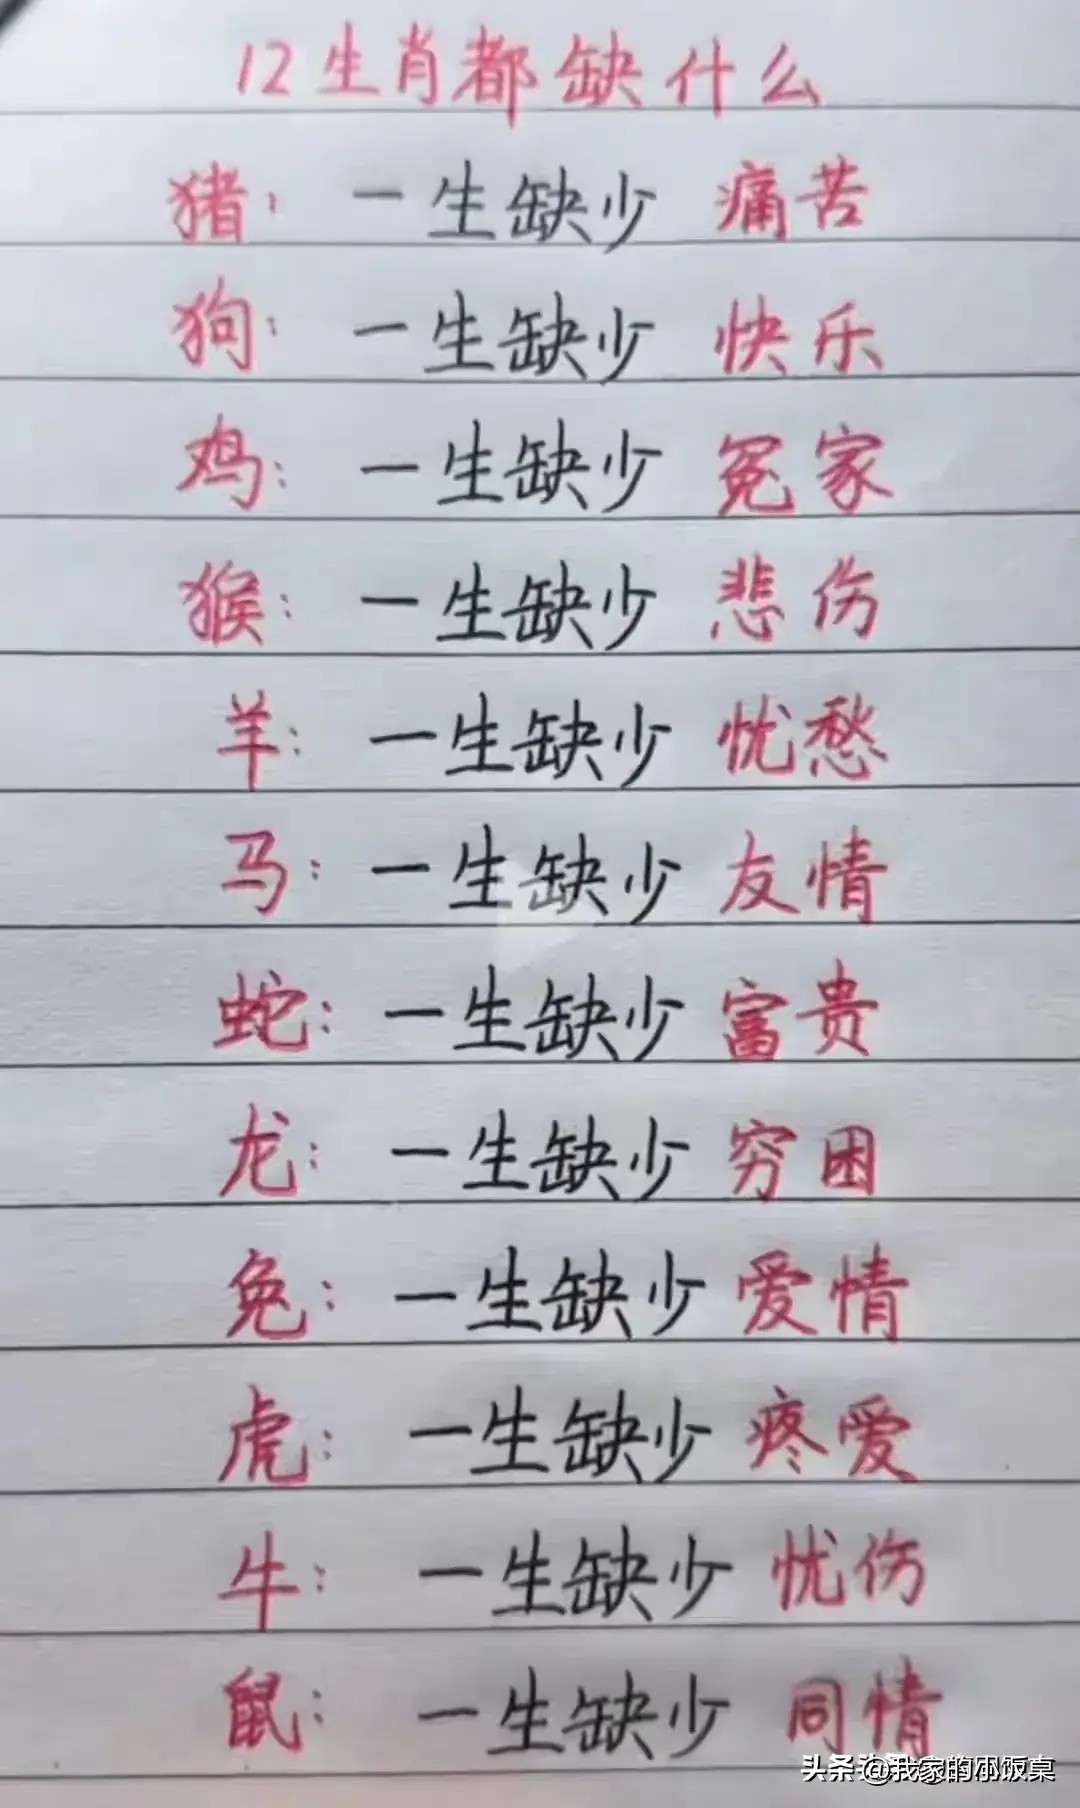 12生肖都缺什么
猪：一生缺少 痛苦
狗：一生缺少 快乐
鸡：一生缺少 冤家
猴：一生缺少 悲伤
羊：一生缺少 忧愁
马：一生缺少 友情
蛇：一生缺少 富贵
龙：一生缺少 穷困
兔：一生缺少 爱情
虎：一生缺少 疼爱
牛：一生缺少 忧伤
鼠：一生缺少 同情
头条 @我家的小饭桌